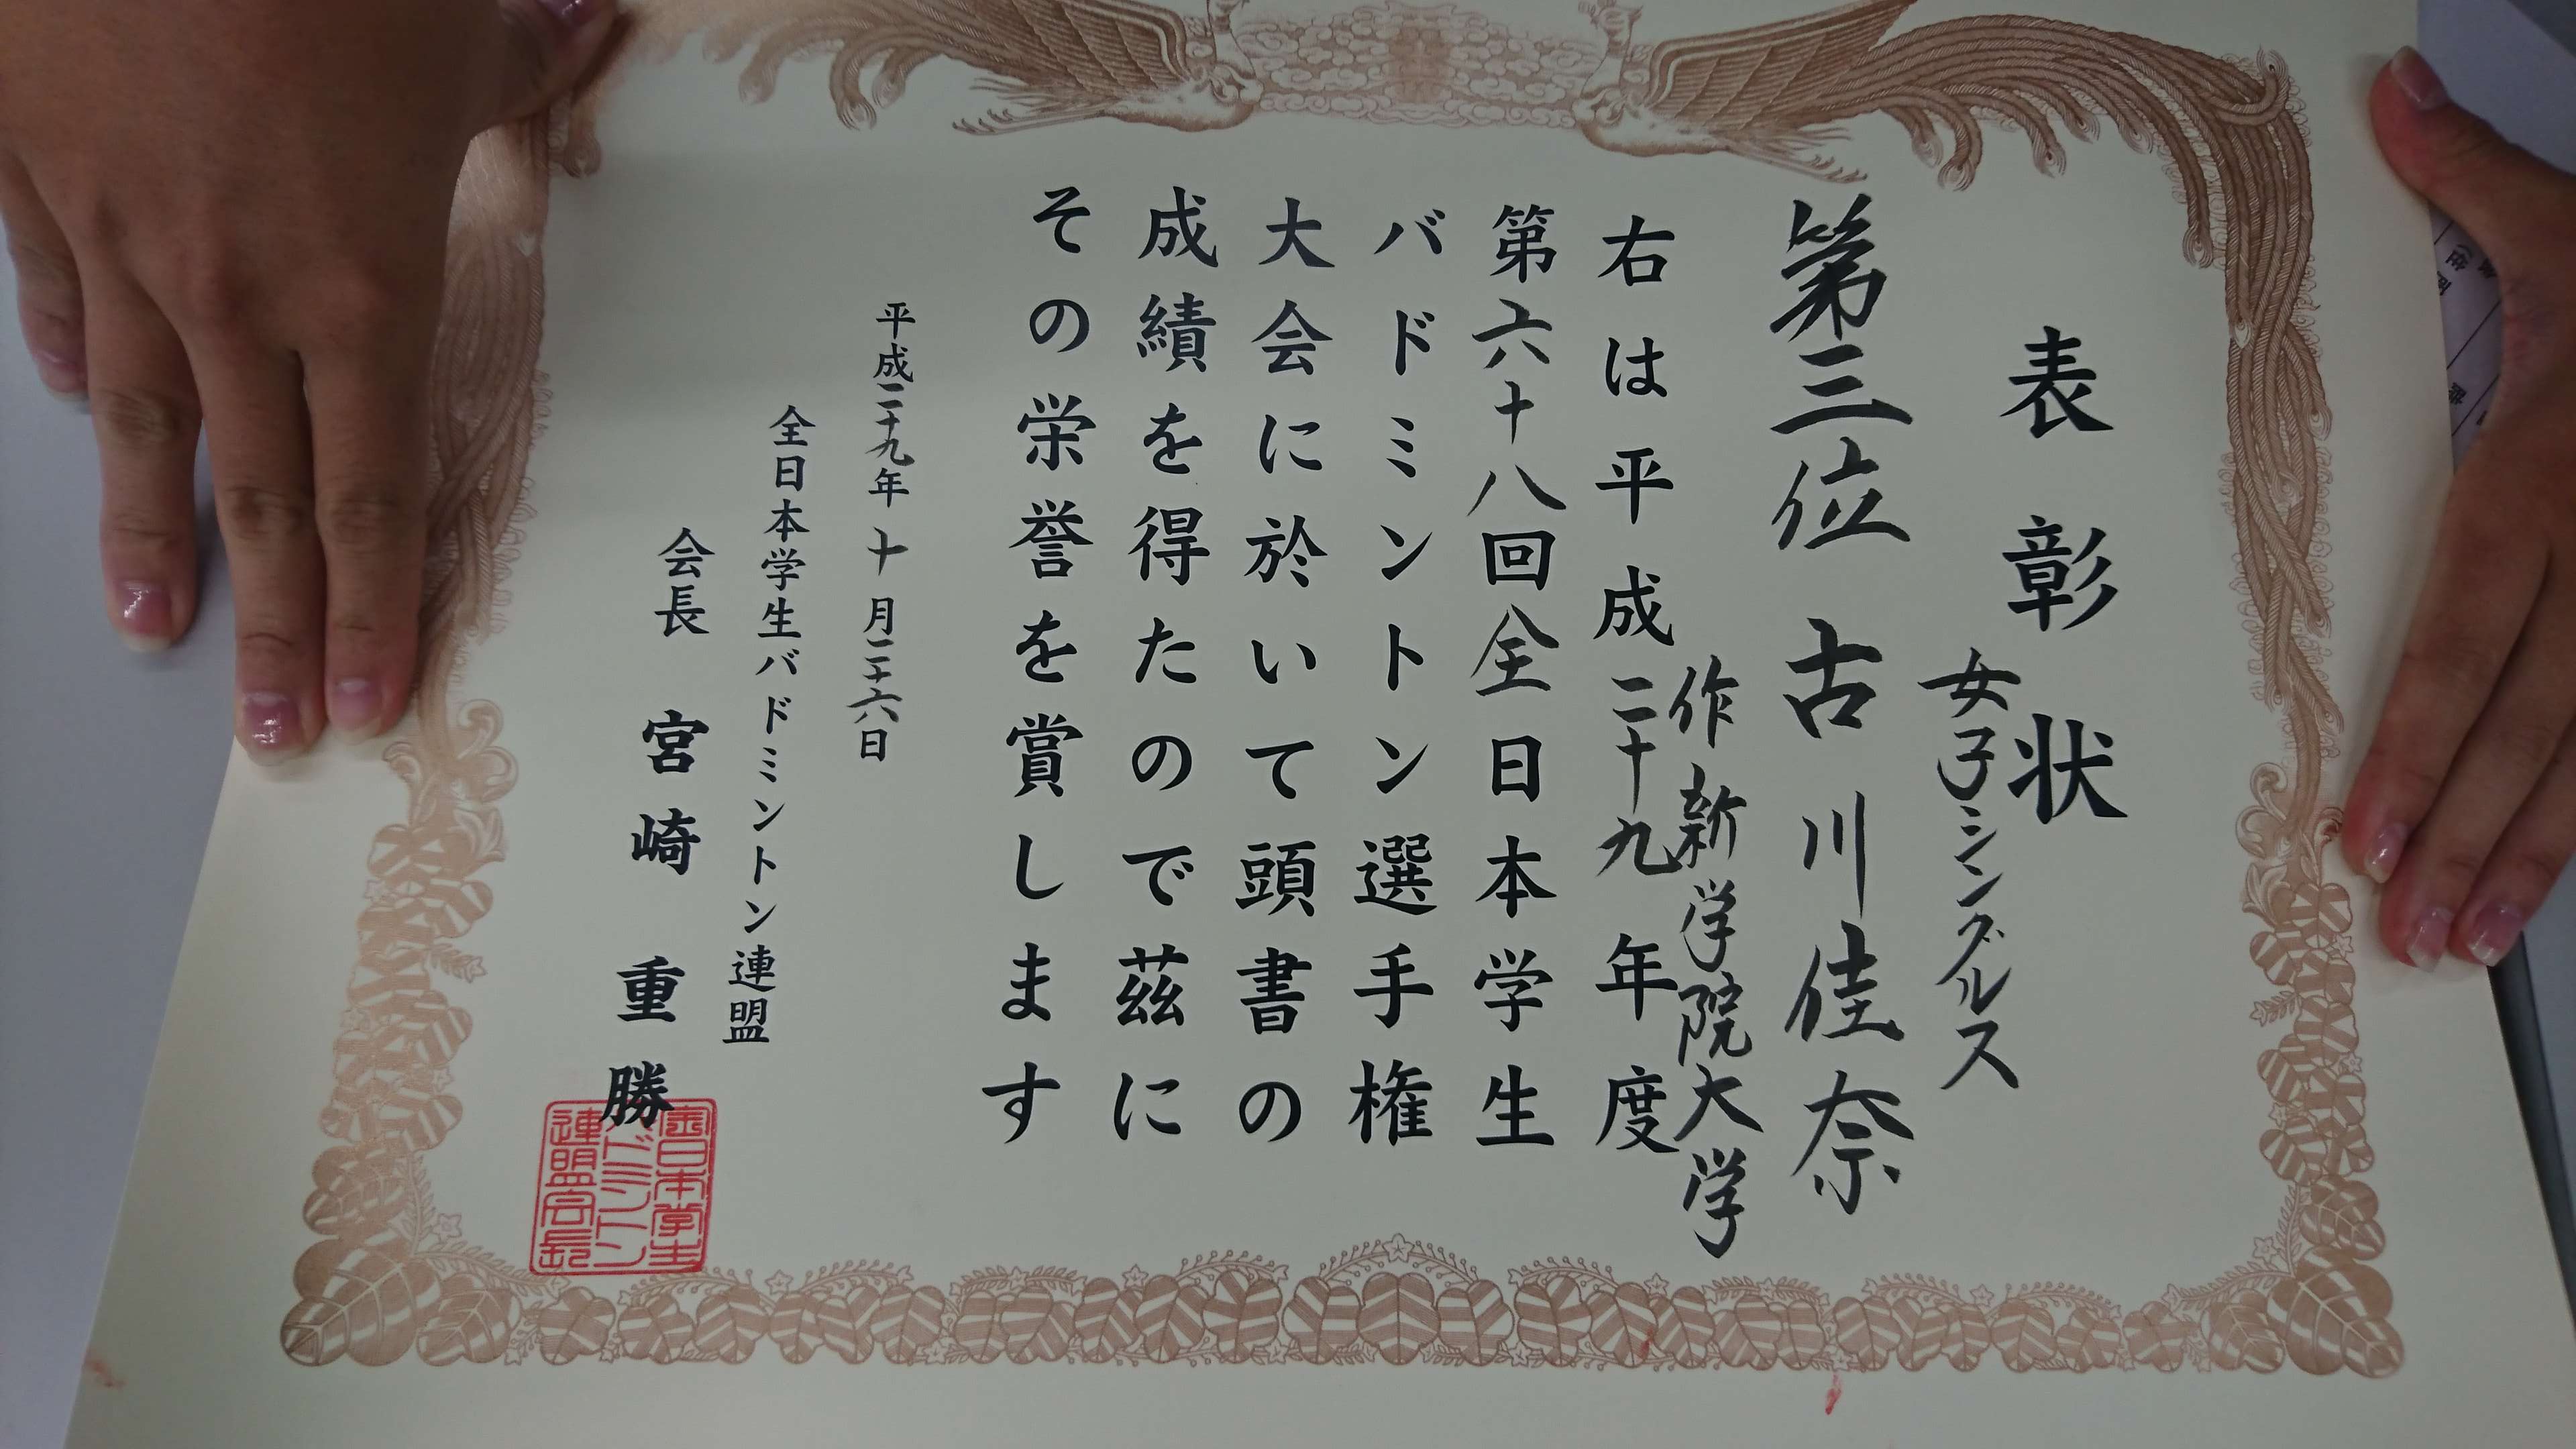 表彰状
女子シングルス
第三位 古川佳奈
作新学院大学
右は平成二十九年度
第六十八回全日本学生
バドミントン選手権
大会に於いて頭書の
成績を得たので茲に
その栄誉を賞します
平成二十九年十月二十六日
全日本学生バドミントン連盟
会長 宮崎重勝
全日本学生
バドミントン
連盟会長